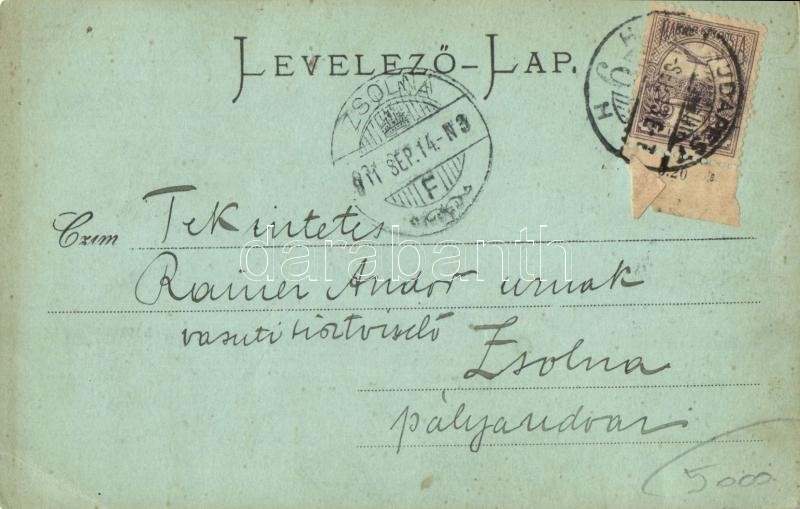 LEVELEZŐ-LAP.
ZSOLNA
911 SEP. 14 - N 3
F
BUDAPEST
Czim
Tekintetes
Rainer Andor urnak
vasuti tisztviselő
Zsolna
pályaudvar
5000
darabanth